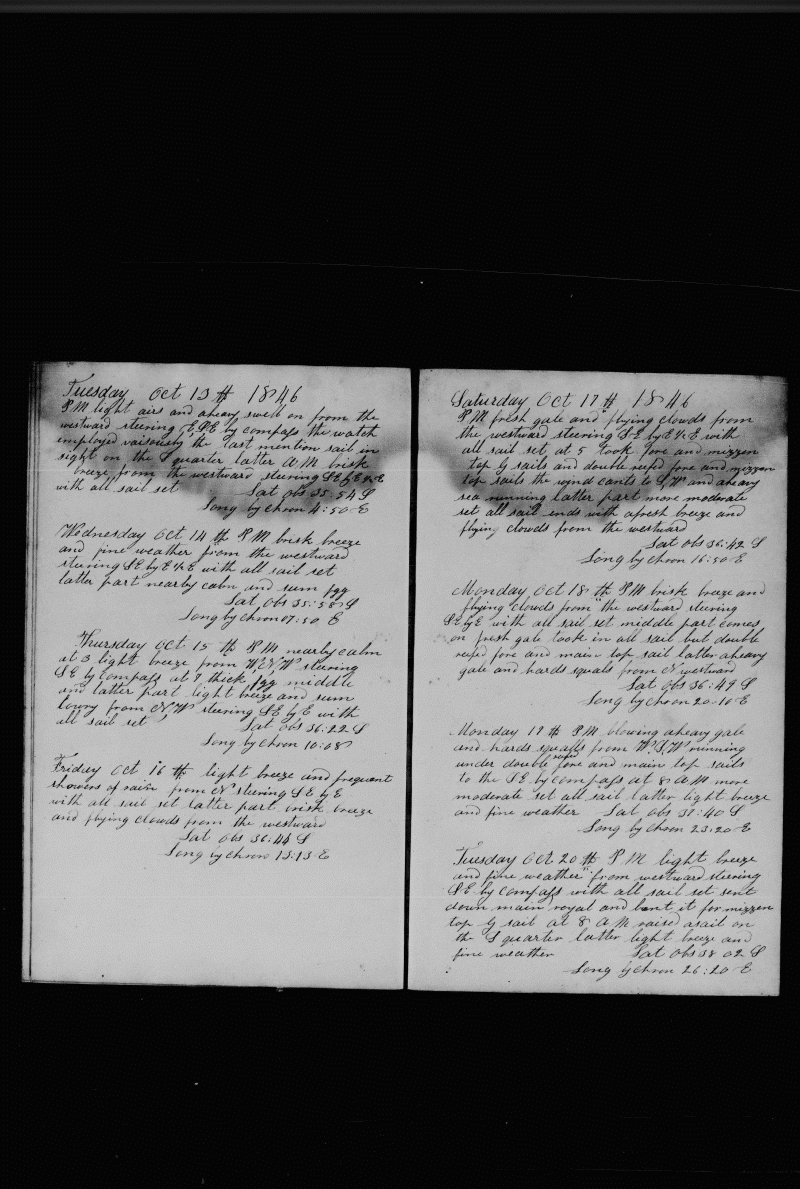 Tuesday Oct 13th 1846
P M light airs and aheavy swell on from the
westward steering E,S,E by compass the watch
employed vaisously the last mention sail in
sight on the S quarter latter A M brisk
breeze from the westward steering SE by E ½ E
with all sail set Lat obs 35:54 S
Long by chron 4:50 E
Wednesday Oct 14th P M brisk breeze
and fine weather from the westward
steering SE by E ½ E with all sail set
latter part nearby calm and sum fgg
Lat Obs 35:58 S
Long by chron 07:50 E
Thursday Oct 15th P M nearby calm
at 3 light breeze from W,N,W steering
SE by compass at 7 thick fgg middle
and latter part light breeze and sum
lowry from N,W steering SE by E with
all sail set Lat obs 36:22 S
Long by chron 10:08
Friday Oct 16th light breeze and frequent
showers of rain from N steering SE by E
with all sail set latter part brisk breeze
and flying clowds from the westward
Lat Obs 36:44 S
Long by chron 13:13 E
Saturday Oct 17th 1846
P M fresh gale and flying clowds from
the westward steering SE by E ½ E with
all sail set at 5 took fore and mizzen
top G sails and double reefd fore and mizzen
top sails the wynd cants to S,W and aheavy
sea running latter part more moderate
set all sail ends with afresh breeze and
flying clowds from the westward
Lat obs 36:42 S
Long by chron 16:50 E
Monday Oct 18th P M brisk breeze and
flying clowds from the westward steering
SE by E with all sail set middle part comes
on fresh gale took in all sail but double
reefd fore and main top sail latter aheavy
gale and hards squals from N westward
Lat Obs 36:49 S
Long by chron 20:10 E
Monday 19th P M blowing aheavy gale
and hards squalls from W,S,W running
under double reefd fore and main top sails
to the SE by compass at 8 A M more
moderate set all sail latter light breeze
and fine weather Lat obs 37:40 S
Long by chron 23:20 E
Tuesday Oct 20th P M light breeze
and fine weather from westward steering
SE by compass with all sail set sent
down main royal and bent it for mizzen
top G sail at 8 A M raised asail on
the S quarter latter light breeze and
fine weather Lat Obs 38 02 S
Long by chron 26:20 E